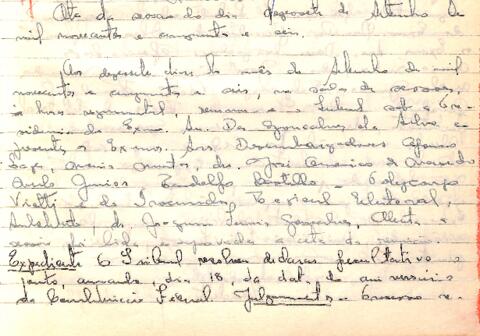 Ata da sessão do dia dezessete de Setembro de
mil novecentos e cincoenta e seis.
Aos dezessete dias do mês de Setembro de mil
novecentos e cincoenta e seis, na sala de sessões,
a hora regimental, reuniu-se o Tribunal sob a Pre-
sidencia do Exmo. Snr. Des. Gonçalves da Silva e
presentes os Exmos. Snrs. Desembargadores Afonso
Lage, mais juntos, drs. José Americo de Macedo
Junior Pelycarpo
Viotti e do Procurador Regional Eleitoral,
Substituto, dr. Joaquim Gonçalves, Aberta a
sessão foi lida e aprovada a ata da
Expediente O Tribunal resolveu declarar facultativo o
ponto, amanhã, dia 18, da data do aniversario
da Constituição Federal Julgamentos - Processo n.